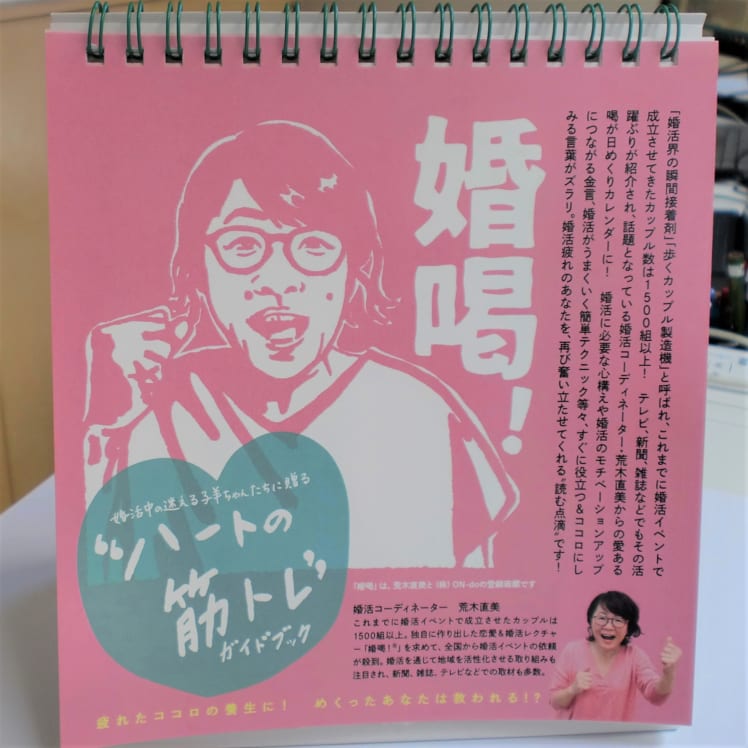 「婚活界の瞬間接着剤」「歩くカップル製造機」と呼ばれ、これまでに婚活イベントで
成立させてきたカップル数は1500組以上！　テレビ、新聞、雑誌などでもその活
躍ぶりが紹介され、話題となっている婚活コーディネーター・荒木直美からの愛ある
喝が日めくりカレンダーに！　婚活に必要な心構えや婚活のモチベーションアップ
につながる金言、婚活がうまくいく簡単テクニック等々、すぐに役立つ＆ココロにし
みる言葉がズラリ。婚活疲れのあなたを、再び奮い立たせてくれる“読む点滴”です！
婚喝！
婚活中の迷える子羊ちゃんたちに贈る
“ハートの
筋トレ”
ガイドブック
「婚喝」は、荒木直美と（株）ON-doの登録商標です
婚活コーディネーター　荒木直美
これまでに婚活イベントで成立させたカップルは
1500組以上。独自に作り出した恋愛＆婚活レクチャ
ー「婚喝！®」を求めて、全国から婚活イベントの依頼
が殺到。婚活を通じて地域を活性化させる取り組みも
注目され、新聞、雑誌、テレビなどでの取材も多数。
疲れたココロの養生に！　めくったあなたは救われる！？